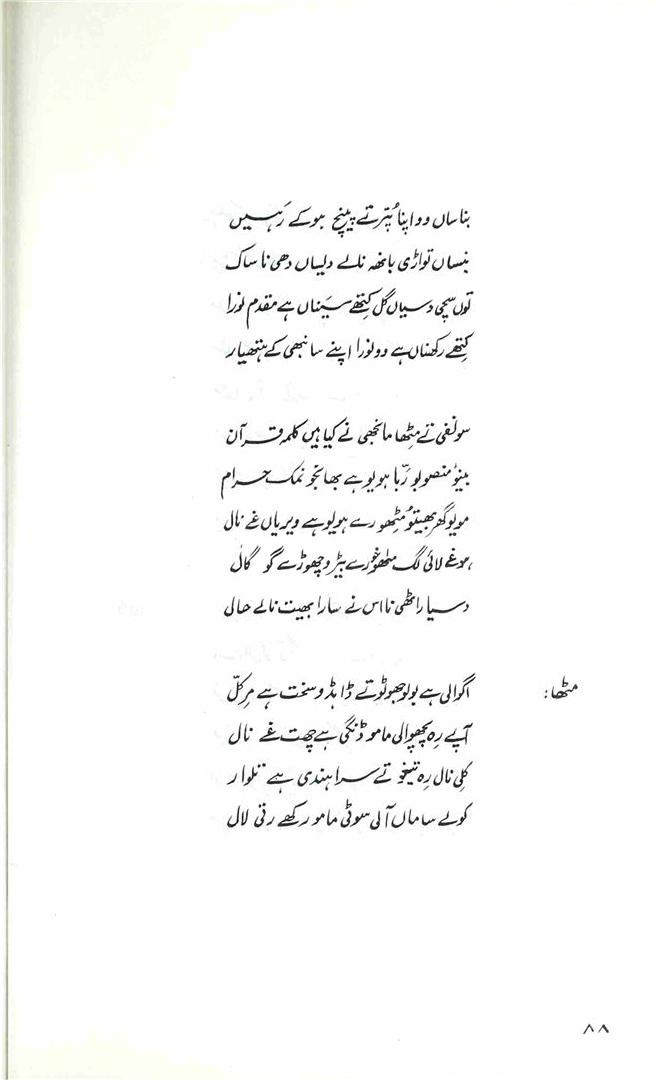 بناساں وو اپنا پُتر تے پینچ ہو کے رَہیں
بنساں تواڑی بانھہ نالے دلیساں دھی نا ساک
توں سچی دسیاں گل کِتھے سَیناں ہے مقدم نورا
کِتھے رکھناں ہے وو نورا اپنے سانبھی کے ہتھیار
سونفی تے مِٹھا مانجھی نے کیا ہیں کلمہ قرآن
بینؤ منصوبو ربّا ہویو ہے بھانجو نمک حرام
مویو گھر بھیتؤ مٹھو رے ہویو ہے ویریاں غے نال
موغے لائی لگ مٹھو خورے بیڑو چھوڑے گو گال
دسیا راٹھی نا اس نے سارا بھیت نالے حالی
مٹھا: اگوالی ہے بولو جھوٹو تے ڈاہڈو سخت ہے مِرکلّ
آپے رہ پچھوالی مامو ڈنگی ہے چھت غے نال
کلِی نال رہ تیغو تے سراہندی ہے تلوار
کولے ساماں آلی سوٹی مامو رکھے رتی لال
۸۸